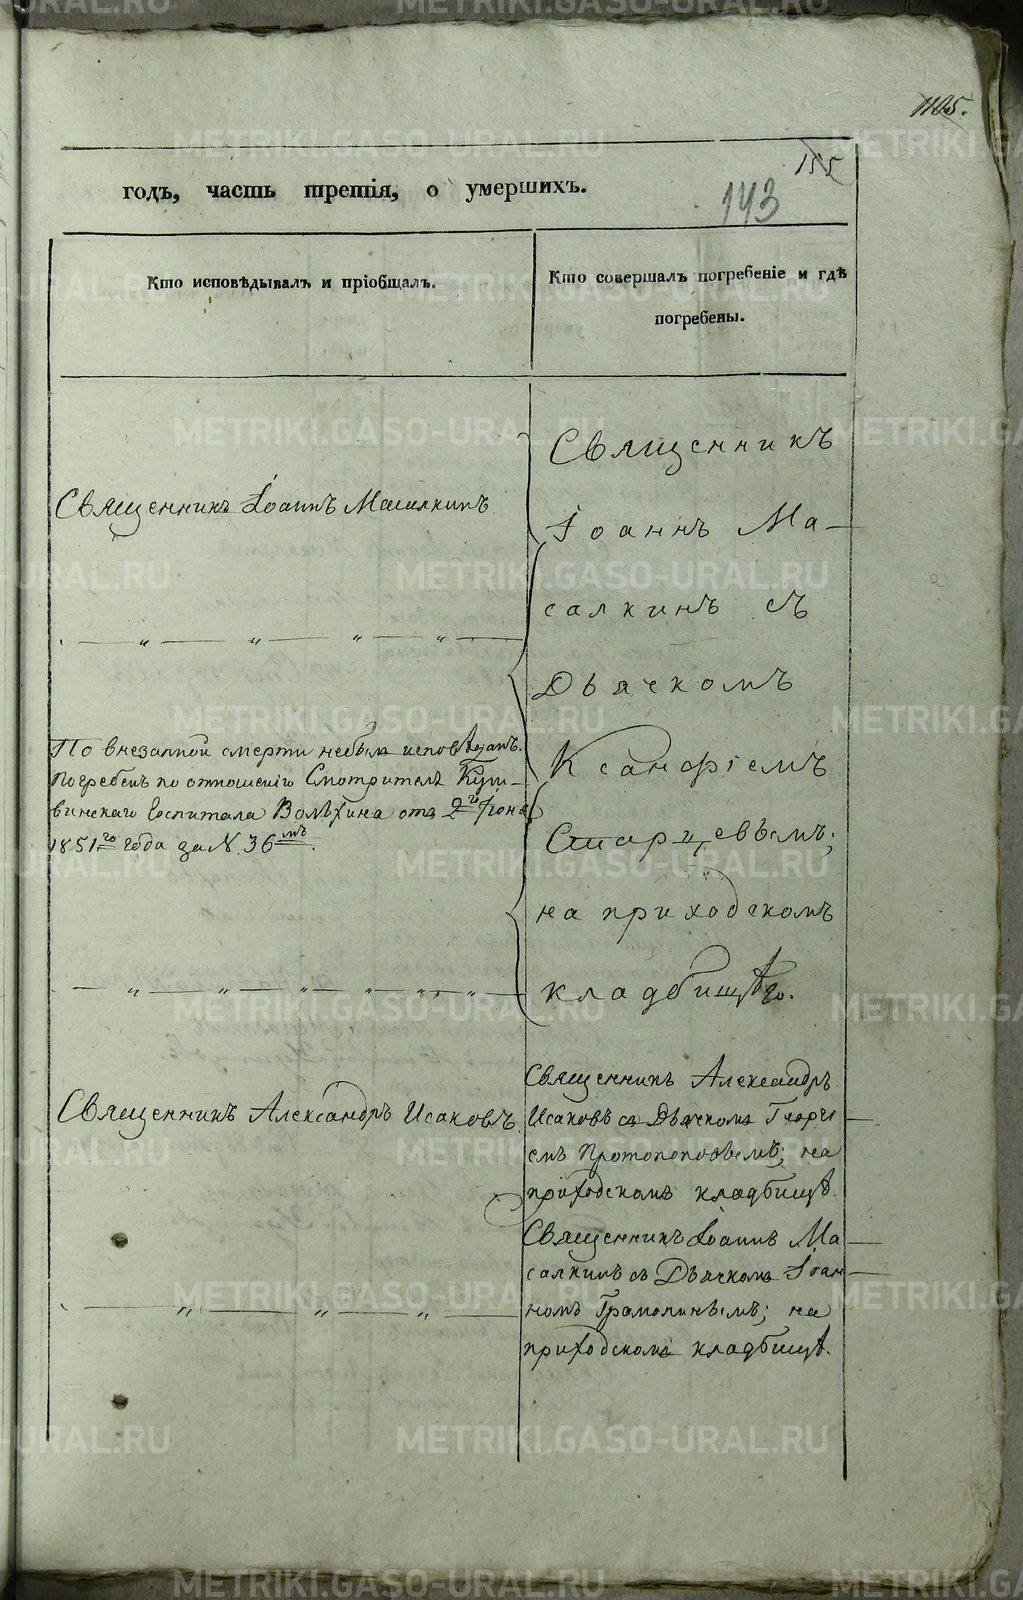 1105.
155
годъ, часть третія, о умершихъ.
143
Кто исповѣдывалъ и пріобщалъ.
Кто совершалъ погребеніе и гдѣ
погребены.
Священникъ Іоаннъ Масалкинъ
По внезапной смерти небылъ исповѣданъ.
Погребенъ по отношенію Смотрителя Куш-
винскаго Госпиталя Волѣгина отъ 2го Іюня
1851го года за №. 36мъ.
Священникъ Александръ Исаковъ.
Священникъ
Іоаннъ Ма-
салкинъ съ
Дьячкомъ
Ксанофіемъ
Старцевымъ;
на приходскомъ
кладбищѣ.
Священникъ Александръ
Исаковъ съ Дьячкомъ Георгі
емъ Протопоповымъ; на
приходскомъ кладбищѣ.
Священникъ Іоаннъ Ма
салкинъ съ Дьячкомъ Іоан
номъ Грамолинымъ; на
приходскомъ кладбищѣ.
METRIKI.GASO-URAL.RU